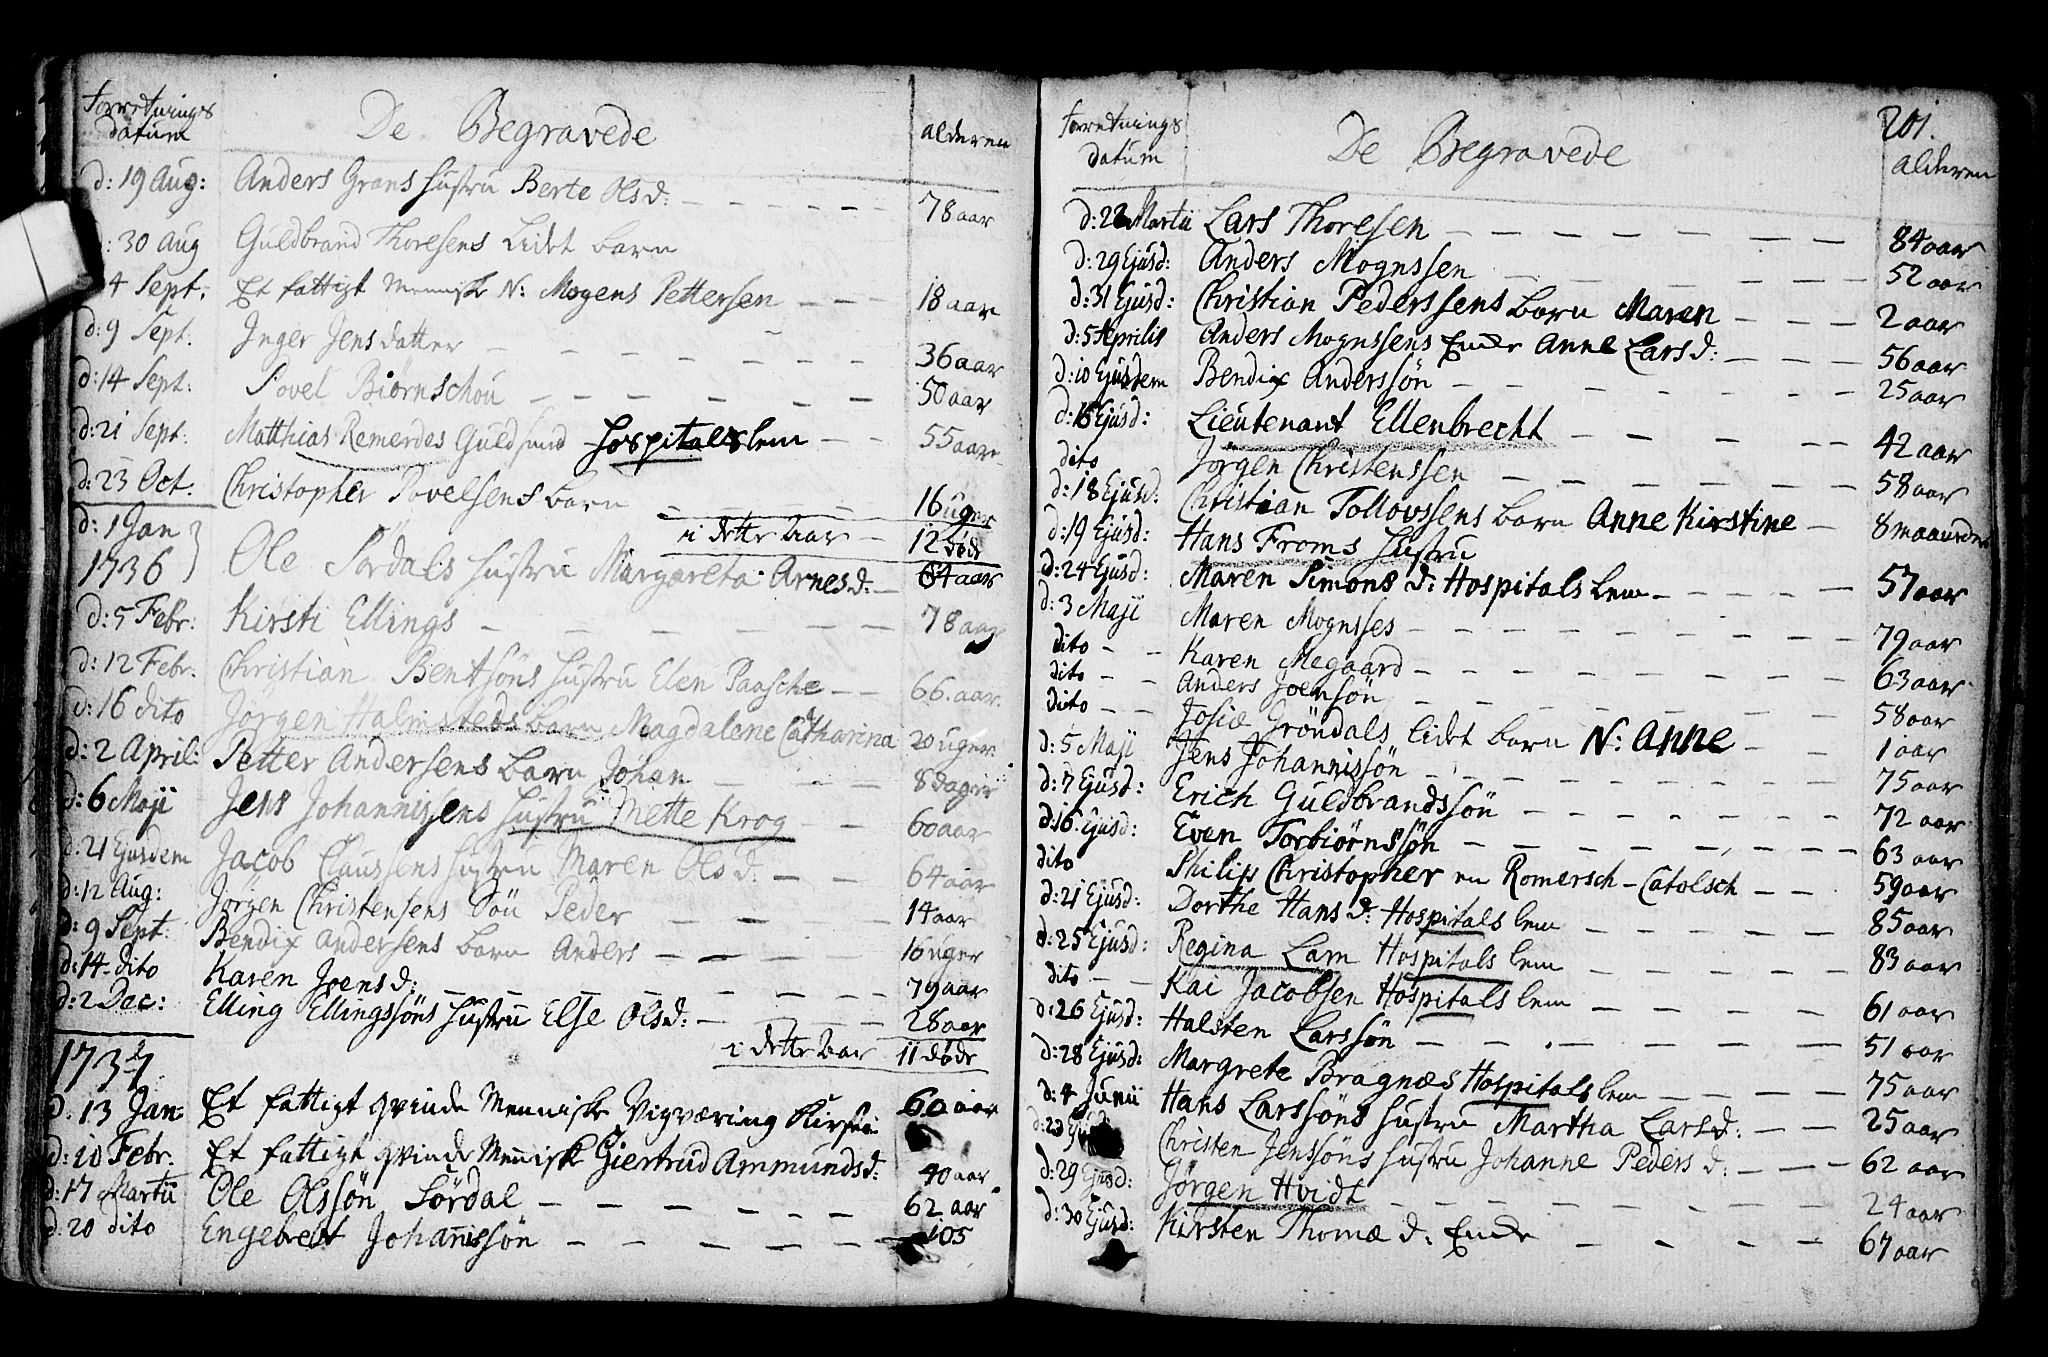 Forretnings
datum
De Begravede
alderen
d: 19 Aug: Anders Grans Hustru Berte Olsd: 78 aar
d: 30 Aug Guldbrand Thoresens Lidet barn
4 Sept. Et fattigt Menniske N: Mogens Pettersen 18 aar
d: 9 Sept. Inger Jens datter 36 aar
d: 14 Sept: Povel Biørnschou 50 aar
d: 21 Sept: Matthias Remerdes Guldsmed Hospitalslem 55 aar
d: 23 Oct. Christopher Povelsens barn 16 uger
i dette Aar 12 døde
d: 1 Jan
1736 Ole Sørdals Hustru Margareta Arnesd: 64 aar
d: 5 Febr: Kirsti Ellings 78 aar
d: 12 Febr. Christian Bentsøns Hustru Elen Paasche 66. aar.
d: 16 dito Jørgen Halmsteds barn Magdalene Catharina 20 uger
d: 2 April: Petter Andersens barn Johan 8 dager
d: 6 Maji Jens Johannissens Hustru Mette Krog 60 aar
d: 21 Ejusdem Jacob Claussens Hustru Maren Olsd: 64 aar
d: 12 Aug: Jørgen Christensens Søn Peder 14 aar
d: 9 Sept: Bendix Andersens barn Anders 16 uger
d: 14 dito Karen Joensd: 79 aar
d: 2 Dec: Elling Ellingssøns Hustru Else Olsd: 28 aar
i dette Aar 11 døde
1737
d. 13 Jan: Et fattigt qvinde Menniske Vigværing Kirstin 60 aar
d: 10 Febr. Et fattigt qvinde Meniske Giertrud Ammundsd: 40 aar
d: 17 Martii Ole Olssøn Sørdal 62 aar
d: 20 dito Engebret Johanissøn 105
Forretnings
datum
De Begravede
201.
alderen
d: 22 Martii Lars Thoresen 84 aar
d: 29 Ejusd: Anders Mognssen 52 aar
d: 31 Ejusd: Christian Pederssens barn Maren 2 aar
d: 5 Aprilis Anders Mognssens Enke Anne Larsd: 56 aar
d: 10 Ejusdem Bendix Anderssøn 25 aar
d: 16 Ejusd: Lieutenant Ellenbrecht 42 aar
dito Jørgen Christenssen 58 aar
d: 18 Ejusd: Christian Tollovssens barn Anne Kirstine 8 maaneder
d: 19 Ejusd: Hans Froms Hustru
d: 24 Ejusd: Maren Simons d: Hospitals lem 57 aar
d: 3 Maji Maren Mognsses 79 aar
dito Karen Megaard 63 aar
dito Anders Joensøn 58 aar
dito Josiæ Grøndals lidet barn N: Anne 1 aar
d: 5 Maji Jens Johannissøn 75 aar
d: 7 Ejusd: Erich Guldbrandssøn 72 aar
d: 16. Ejusd: Even Torbiørnssøn 63 aar
dito Philip Christopher en Romersch-Catolsch 59 aar
d: 21 Ejusd: Dorthe Hans d: Hospitals lem 85 aar
d: 25 Ejusd: Regina Lam Hospitals lem 83 aar
dito Kai Jacobsen Hospitals lem 61 aar
d: 26 Ejusd: Halsten Larssøn 51 aar
d: 28 Ejusd: Margrete Bragnæs Hospitals lem 75 aar
d: 4 Junii Hans Larssøns Hustru Martha Larsd: 25 aar
d: 20 Christen Jenssøns Hustru Johanne Peders d: 62 aar
d: 29 Ejusd: Jørgen Hvidt 24 aar
d: 30 Ejusd: Kirsten Thomæ d: Enke 67 aar